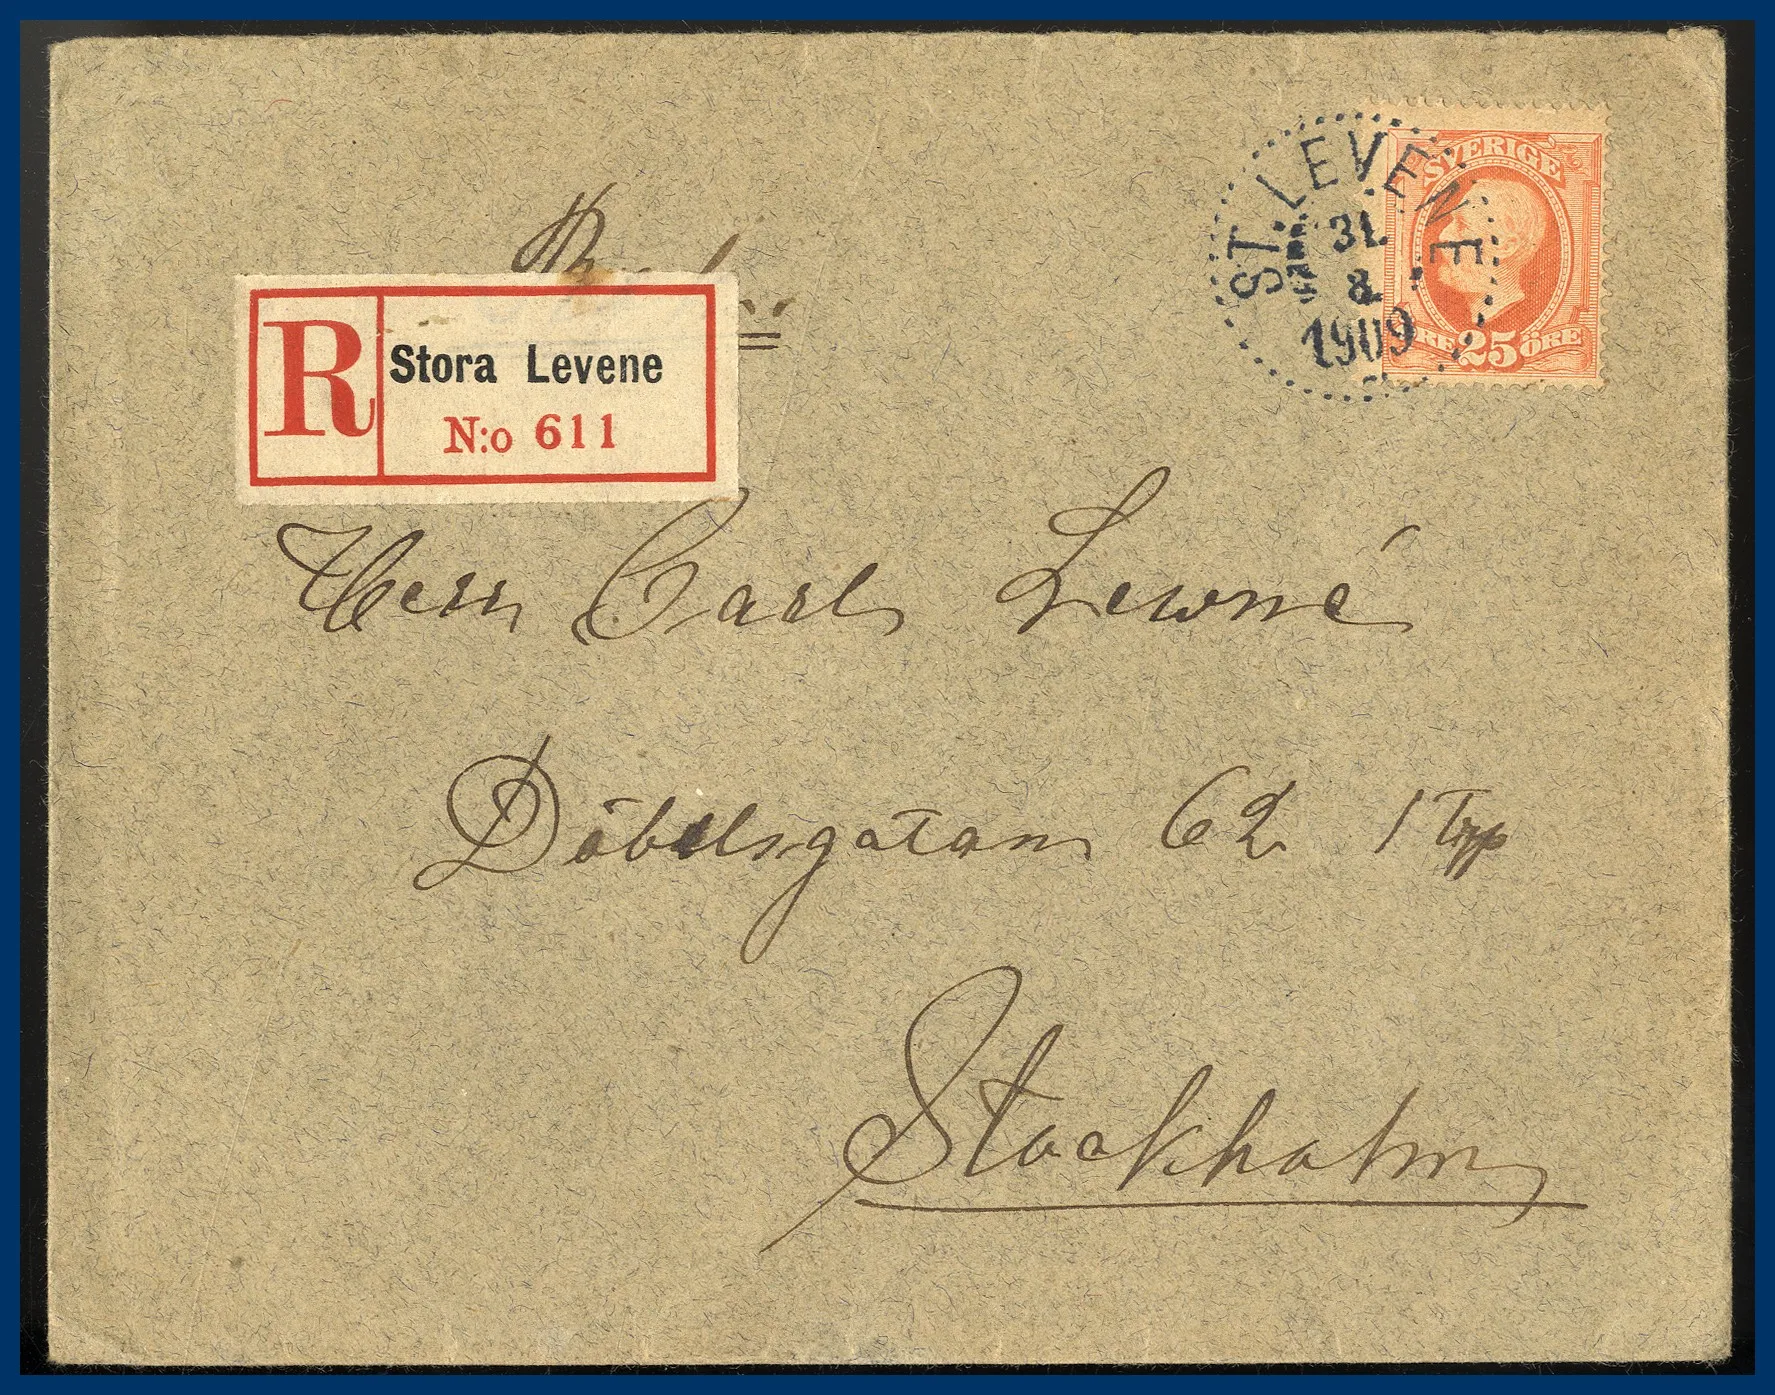 SVERIGE
ST. LEVENE
31.
8.
1909
ÖRE 25 ÖRE
R
Stora Levene
N:o 611
Herr Carl Lewné
Döbelsgatan 62 1 Trp
Stockholm